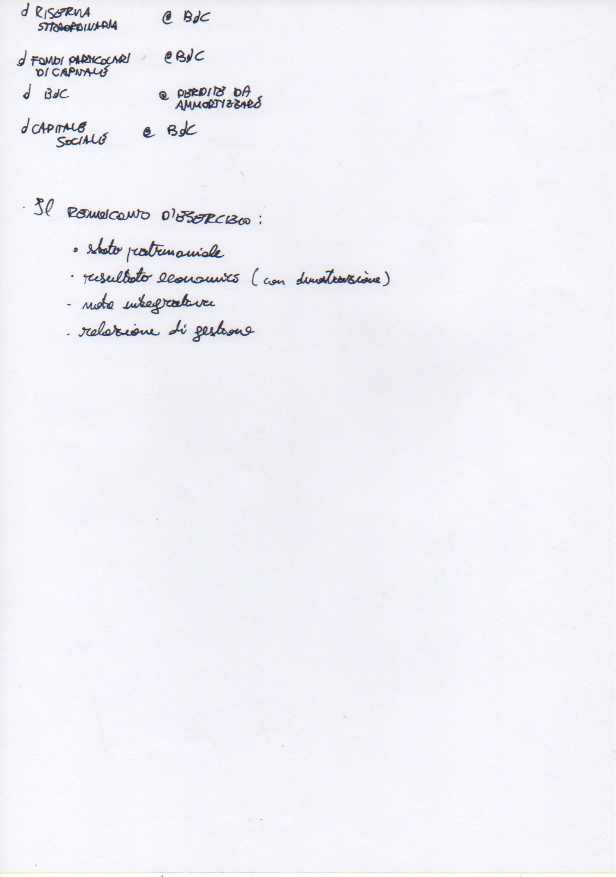 d RISERVA @ BdC
STRAORDINARIA
d FONDI PARTICOLARI @ BdC
DI CAPITALE
d BdC @ PERDITE DA
AMMORTIZZARE
d CAPITALE @ BdC
SOCIALE
· Il RENDICONTO D'ESERCIZIO :
· stato patrimoniale
· risultato economico ( con dimostrazione )
- nota integrativa
· relazione di gestione